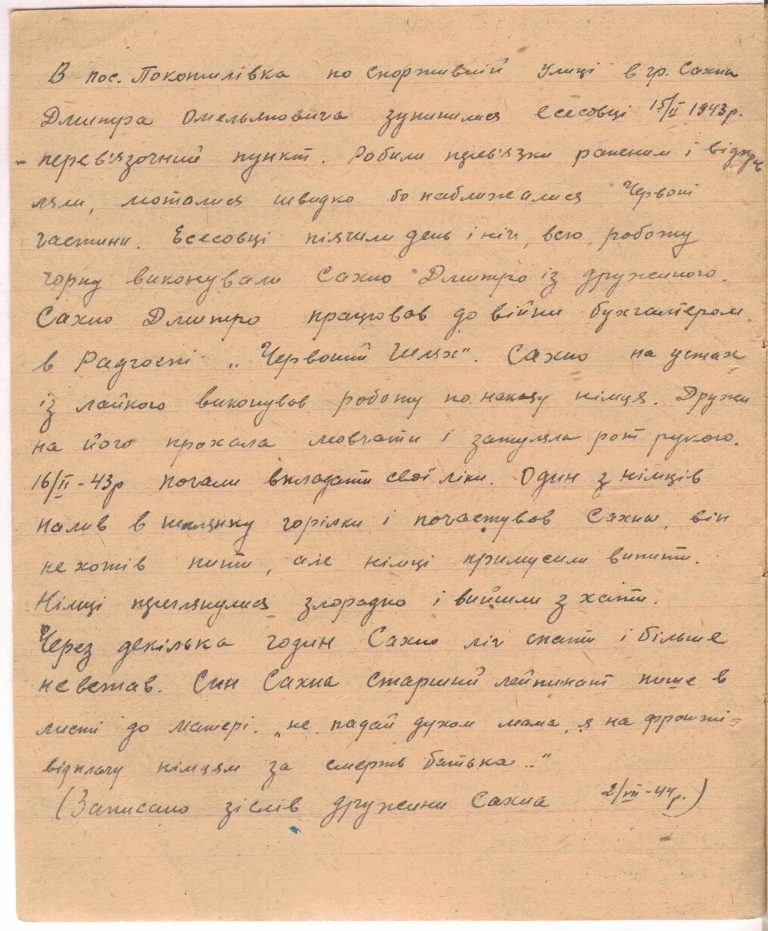 В пос. Покотилівка по спортивній улиці в гр. Сахна
Дмитра Омельяновича зупинилися есесовці 15/II 1943р.
- перев'язочний пункт. Робили перев'язки раненим і відправ
ляли, моталися швидко бо наближалися Червоні
частини. Есесовці піячили день і ніч, всю роботу
чорну виконували Сахно Дмитро із дружиною.
Сахно Дмитро працював до війни бухгалтером
в Радгоспі „Червоний Шлях". Сахно на устах
із лайкою виконував роботу по наказу німця. Дружи
на його прохала мовчати і затуляла рот рукою.
16/II-43р почали вкладати свої ліки. Один з німців
налив в горілки і почастував Сахна, він
не хотів пити, але німці примусили випити.
Німці переглянулися злорадно і вийшли з хати.
Через декілька годин Сахно ліг спати і більше
не встав. Син Сахна старший лейтинант пише в
листі до матері. „не падай духом мама, я на фронті -
відплачу німцям за смерть батька.."
(Записано зі слів дружини Сахна 2/VII-44р.)